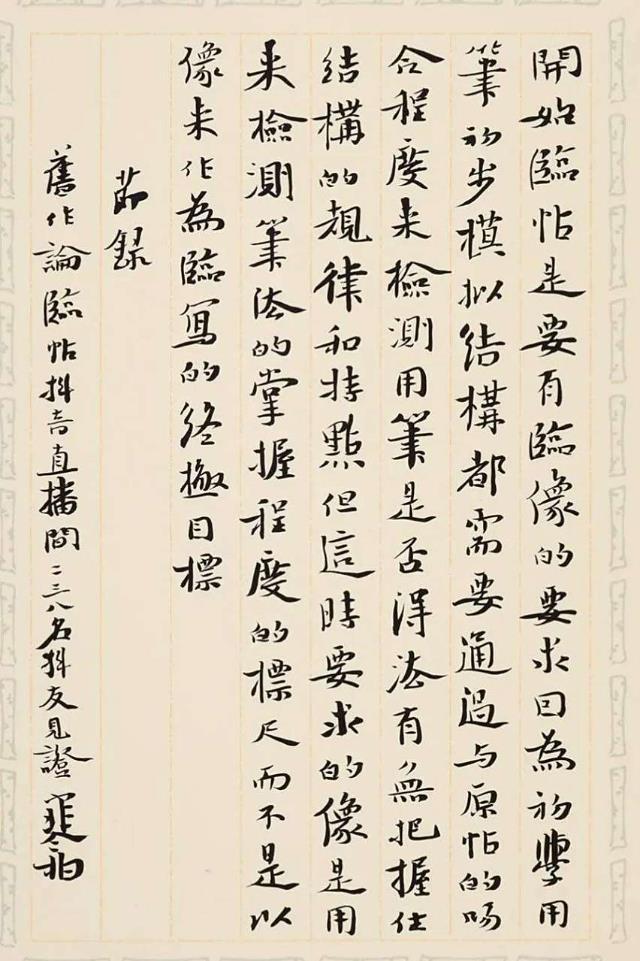 開始臨帖是要有臨像的要求曰為初學用
筆初步模拟結構都需要通過与原帖的吻
合程度来檢測用筆是否得法有無把握住
結構的規律和特點但這時要求的像是用
来檢測筆法的掌握程度的標尺而不是以
像来作為臨寫的终極目標
節録
舊作論臨帖抖音直播間二三八名抖友見證